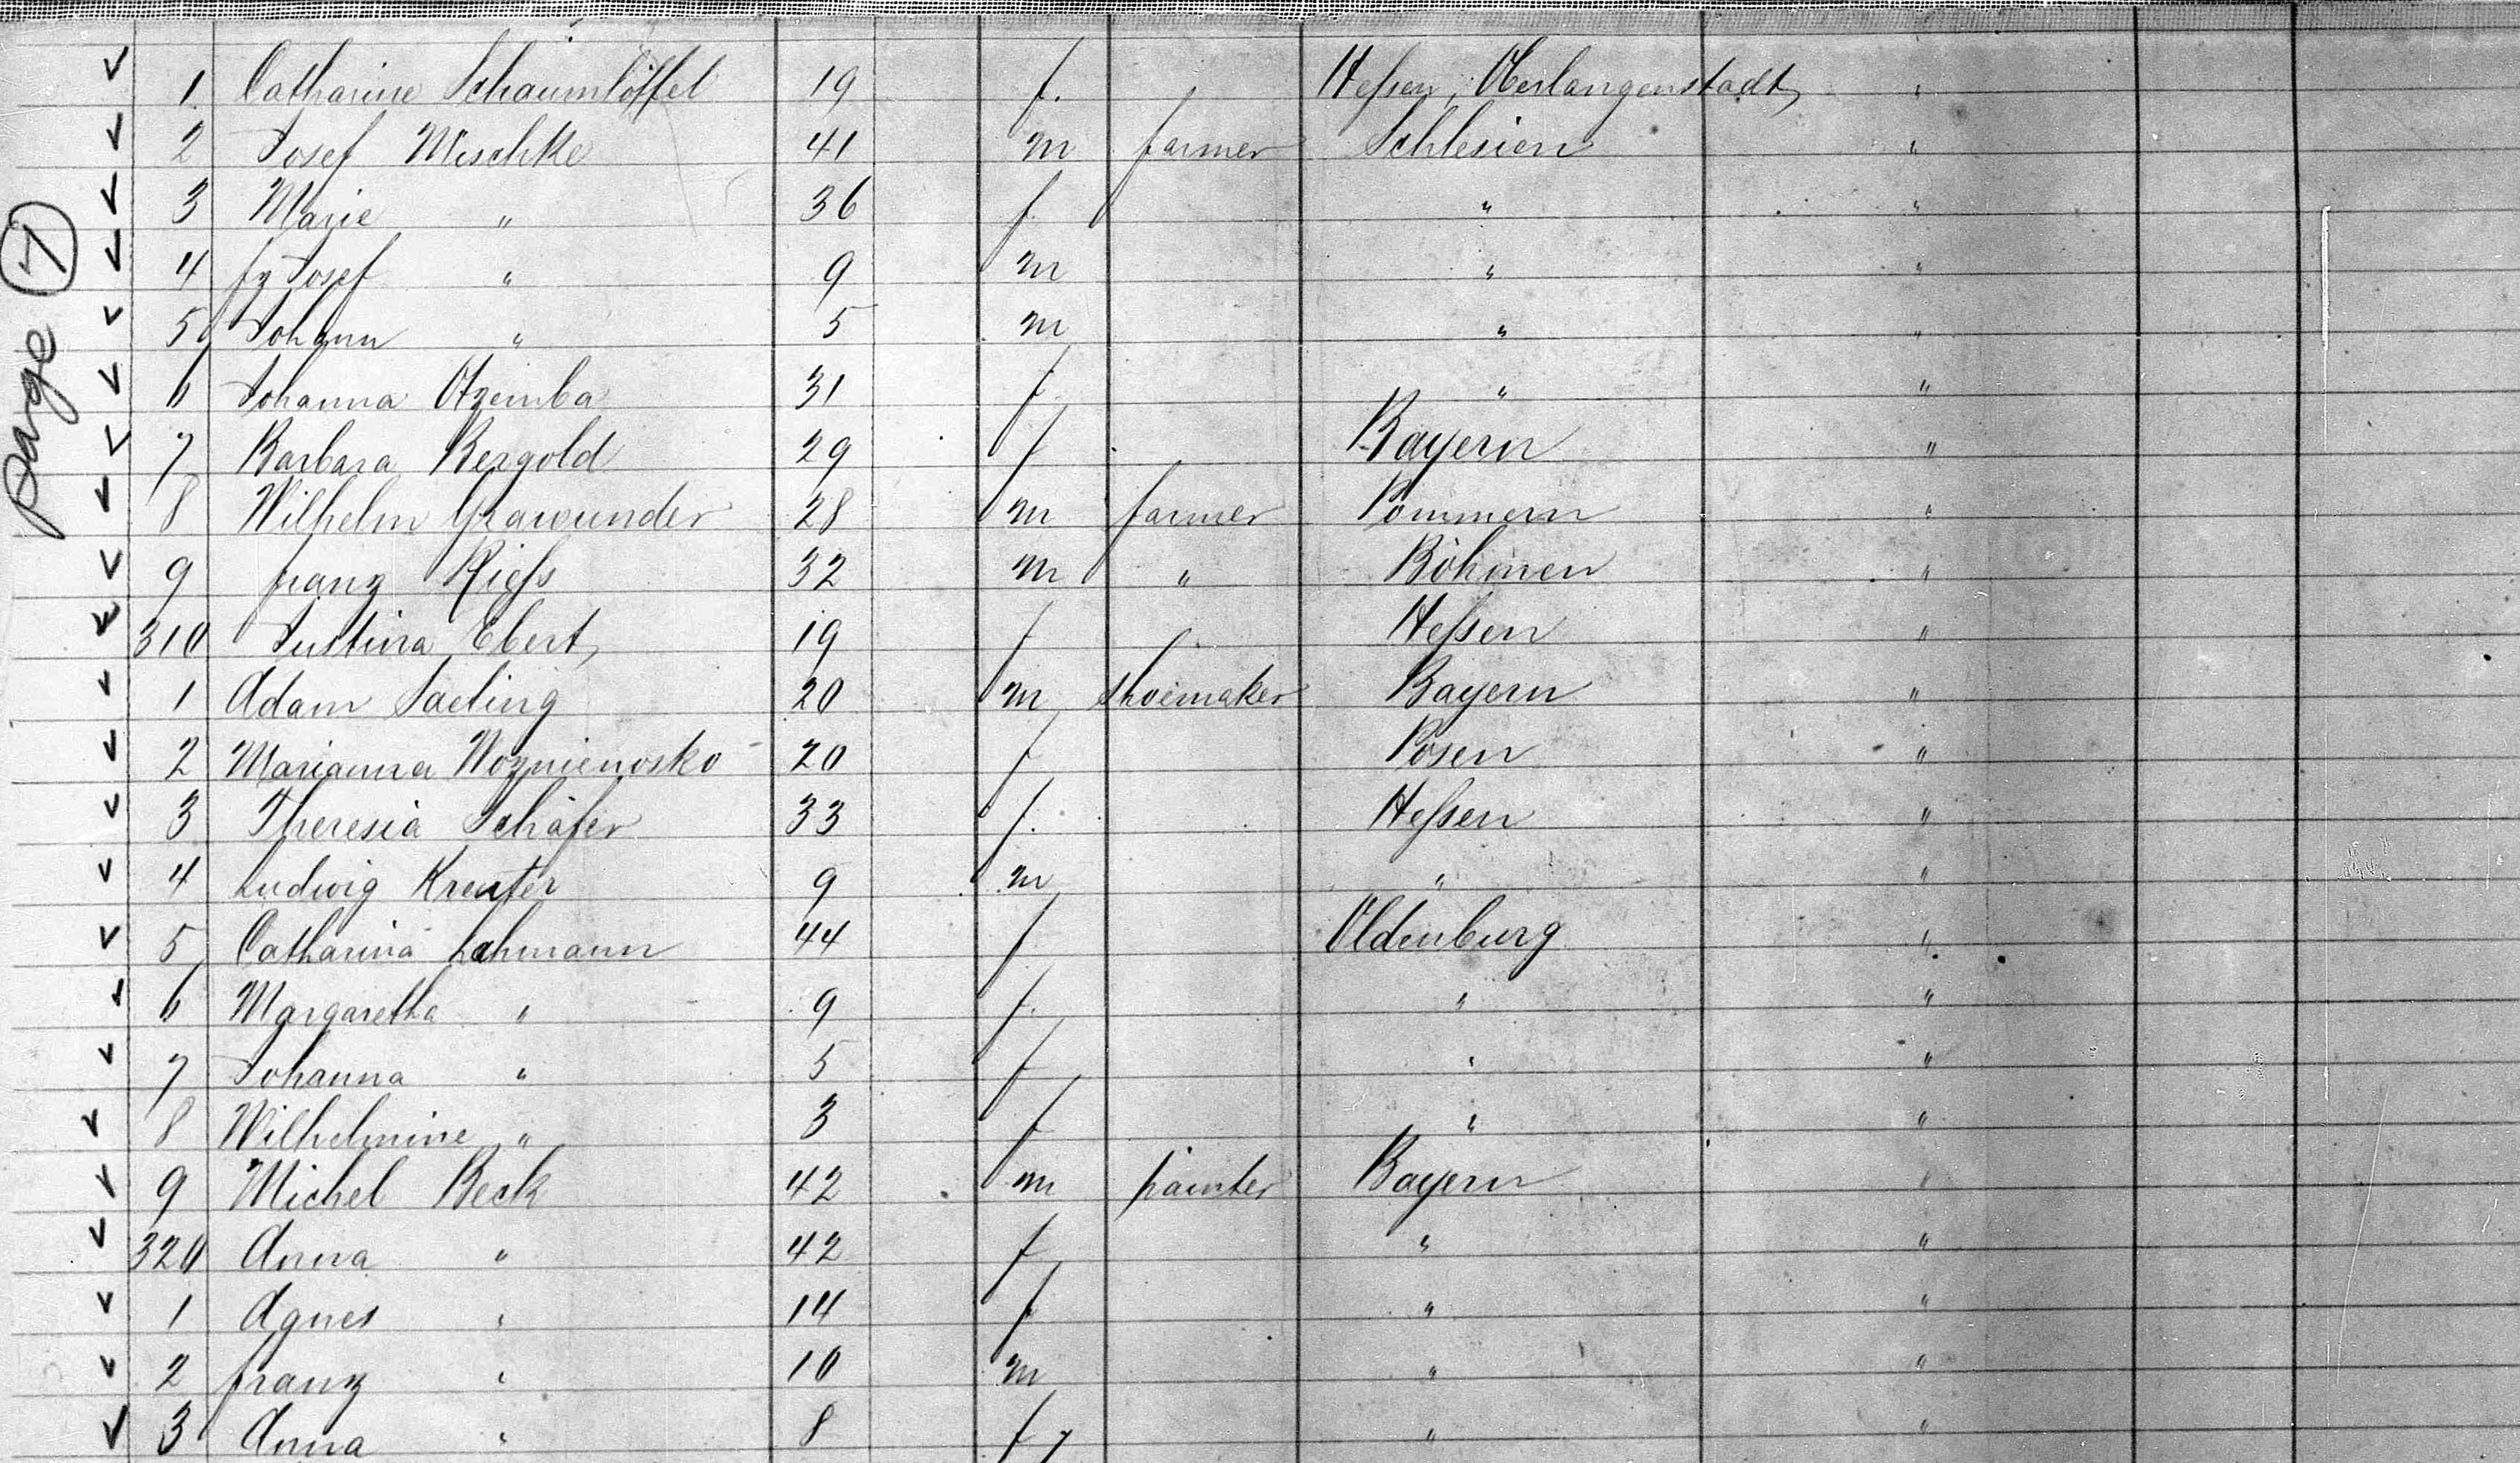 page 7
1 Catharine Schaumlöffel 19 f. Hessen, Oberlangenstadt "
2 Josef Mischke 41 m farmer Schlesien "
3 Marie " 36 f " "
4 fz Josef " 9 m " "
5 Johann " 5 m " "
6 Johanna Ozemba 31 f " "
7 Barbara Bergold 29 f Bayern "
8 Wilhelm Grawunder 28 m farmer Pommern "
9 franz Riess 32 m " Böhmen "
310 Justina Ebert 19 f Hessen "
1 Adam Saeling 20 m shoemaker Bayern "
2 Marianna 20 f Posen "
3 Theresia Schäfer 33 f. Hessen "
4 Ludwig Kreuter 9 m " "
5 Catharina Lahmann 44 f Oldenburg "
6 Margaretha " 9 f. " "
7 Johanna " 5 f " "
8 Wilhelmine " 3 f " "
9 Michel Beck 42 m painter Bayern "
320 Anna " 42 f " "
1 Agnes " 14 f " "
2 franz " 10 m " "
3 Anna " 8 f " "